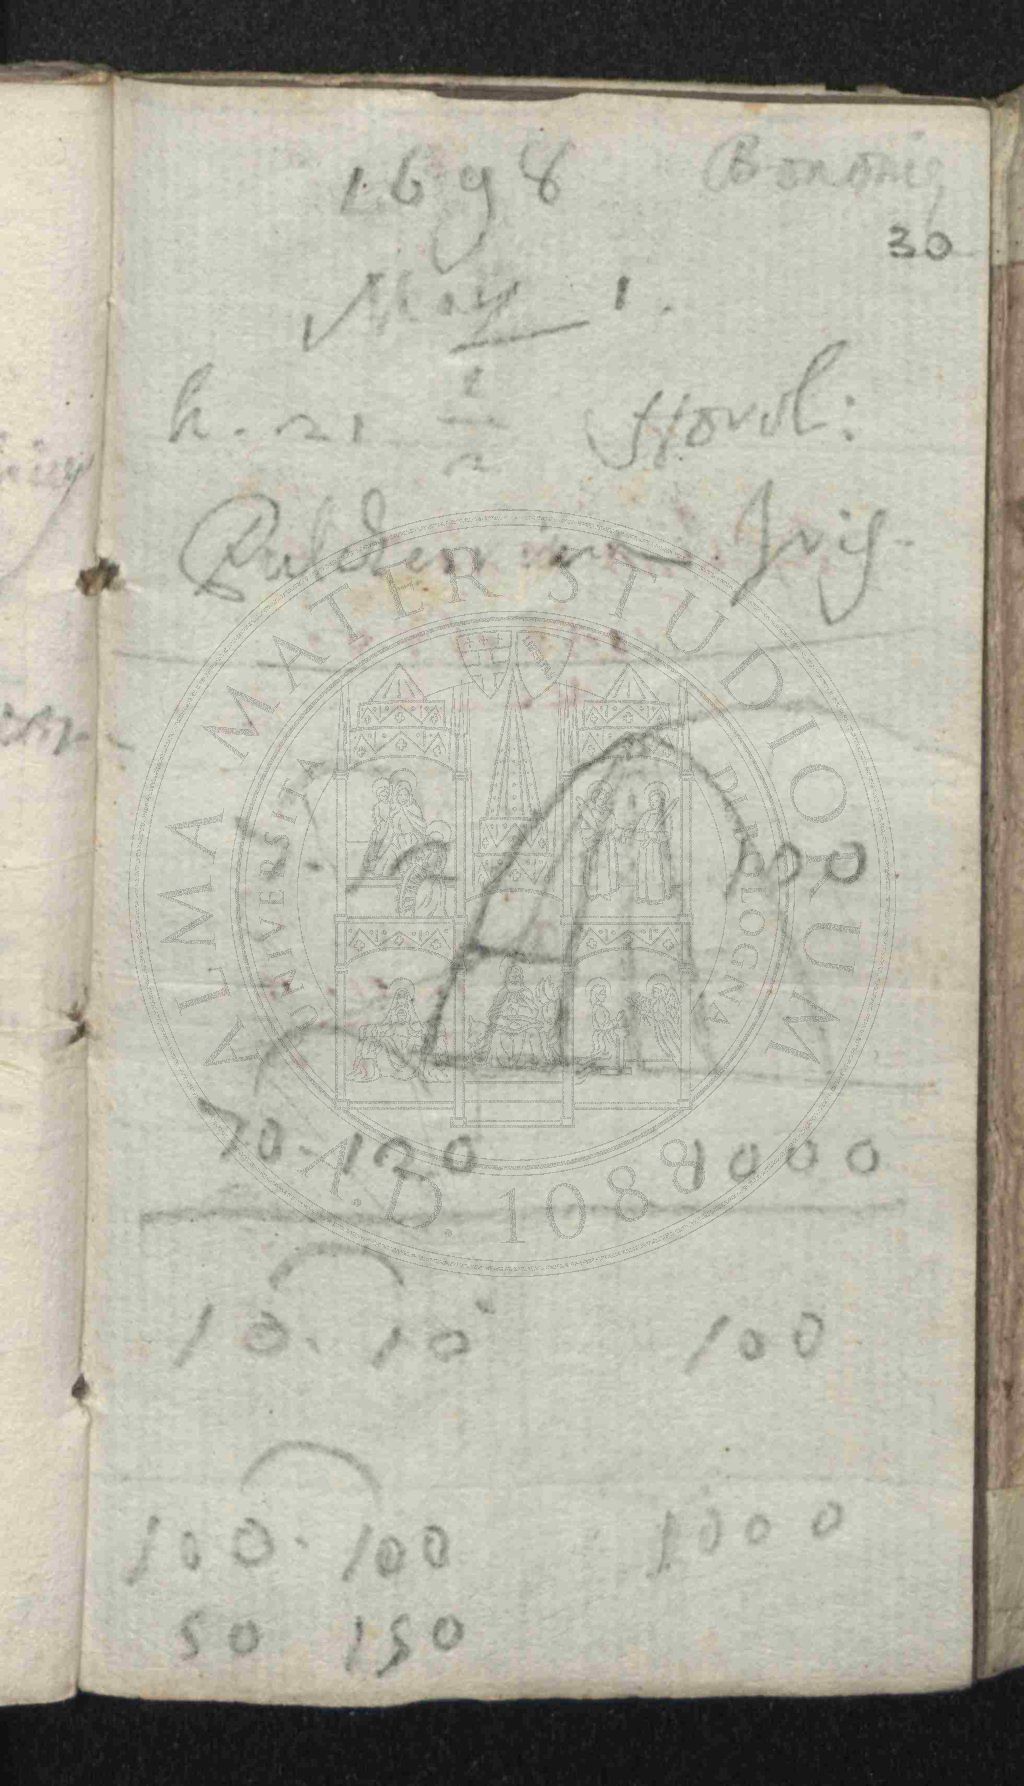 1698 Bononię
30
May 1.
h. 21 1/2 Horol:
in Iris
5. 12 100
70-120 1000
10. 10 100
100. 100 1000
50 150
ALMA MATER STUDIORUM
A.D. 1088
UNIVERSITÀ DI BOLOGNA